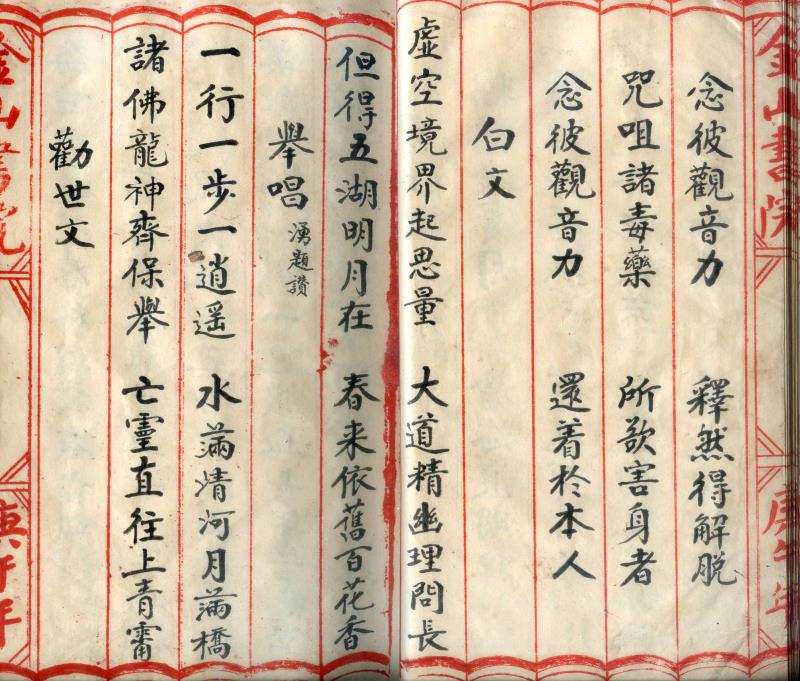 金山書院 庚午年
念彼觀音力 釋然得解脫
咒咀諸毒藥 所欲害身者
念彼觀音力 還着於本人
白文
虛空境界起思量 大道精幽理問長
但得五湖明月在 春来依舊百花香
舉唱 湧題讚
一行一步一逍遥 水滿清河月滿橋
諸佛龍神齊保舉 亡靈直往上青霄
勸世文
金山書院 庚午年